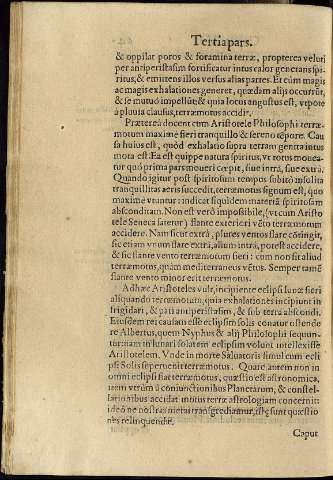 Tertia pars.
& oppilat poros & foramina terræ, propterea veluti
per antiperistasim fortificatur intus calor generans spi-
ritus, & emittens illos versus alias partes. Et cùm magis
ac magis exhalationes generet, quædam alijs occurrūt,
& se mutuò impellūt; & quia locus angustus est, vtpote
à pluuia clausus, terræmotus accidit.
Præterea docent cum Aristotele Philosophi terræ-
motum maximè fieri tranquillo & sereno tēpore. Cau
sa huius est, quòd exhalatio supra terram genita intus
mota est. Ea est quippe natura spiritus, vt totus mouea-
tur quò prima pars moueri cœpit, siue intrà, siue extrà.
Quando igitur post spiritosum tempus subitò insolita
tranquillitas aeris succedit, terræmotus signum est, quo
maximè vtuntur: indicat siquidem materiā spiritosam
absconditam. Non est verò impossibile, (vt cum Aristo
tele Seneca fatetur) flante exteriori vēto terræmotum
accidere. Nam sicut extrà, plures ventos flare cōtingit,
sic etiam vnum flare extrà, alium intrà, potest accidere,
& sic flante vento terræmotus fieri: cum non sit aliud
terræmotus, quàm mediterraneus vētus. Semper tamē
flante vento minor erit terræmotus.
Adhæc Aristoteles vult, incipiente eclipsi lunæ fieri
aliquando terræmotum, quia exhalationes incipiunt in
frigidari, & pati antiperistasim, & sub terra abscondi.
Eiusdem rei causam esse eclipsim solis conatur ostende
re Albertus, quem Nyphus & alij Philosophi sequun-
tur: nam in lunari solarem eclipsim voluit intellexisse
Aristotelem. Vnde in morte Saluatoris simul cum ecli
psi Solis superuenit terræmotus. Quare autem non in
omni eclipsi fiat terræmotus, quæstio est astronomica,
item vtrùm à coniunctionibus Planetarum, & constel-
lationibus accidat motus terræ astrologiam concernit:
ideò ne nostras metas transgrediamur, istæ sunt quæstio
nes relinquendæ.
Caput